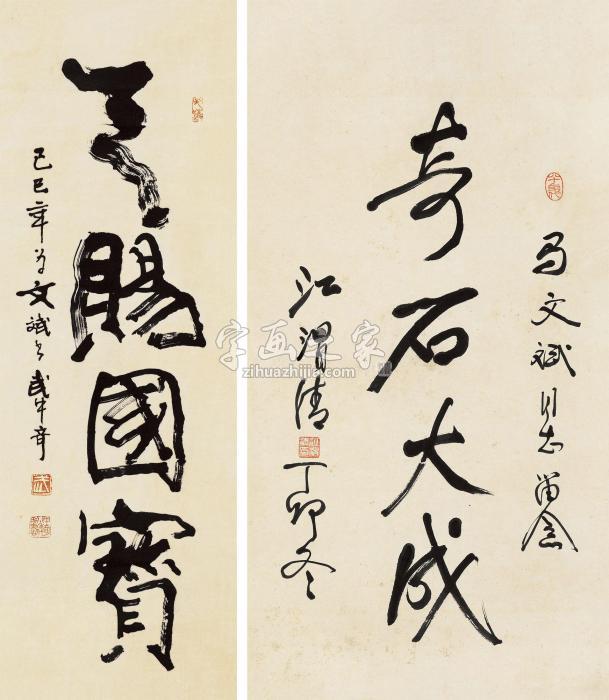 天賜國寶
己巳年为文斌书 武中奇
马文斌同志留念
奇石大成
江渭清
丁卯冬
字画专家
zihuazhijia.com